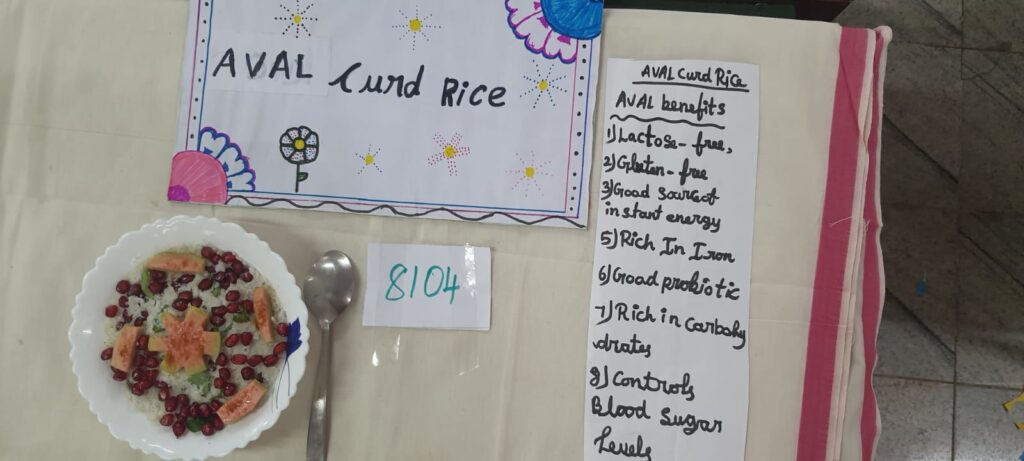 AVAL Curd Rice
8104
AVAL Curd Rice
AVAL benefits
1) Lactose-free,
2) Gluten-free
3) Good source of
instant energy
5) Rich In Iron
6) Good probiotic
7) Rich in Carbohy
drates
8) Controls
Blood Sugar
Levels